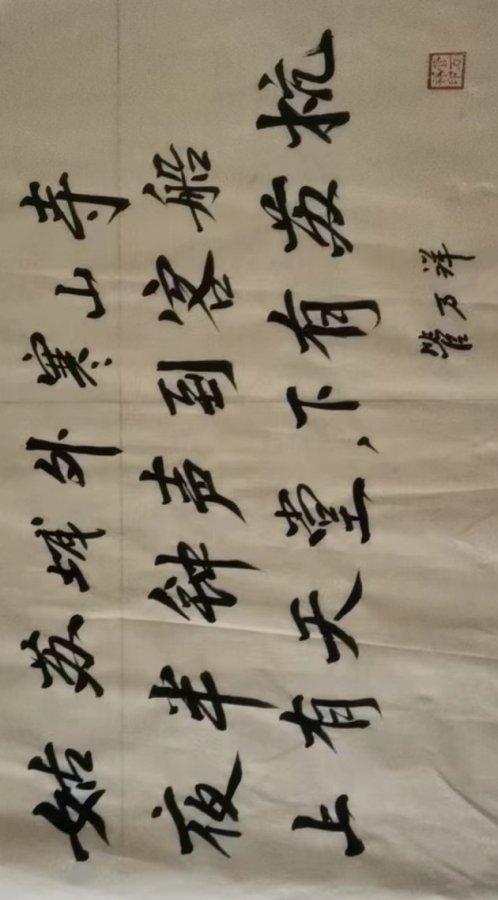 姑苏城外寒山寺
夜半钟声到客船
上有天堂、下有苏杭
管万祥